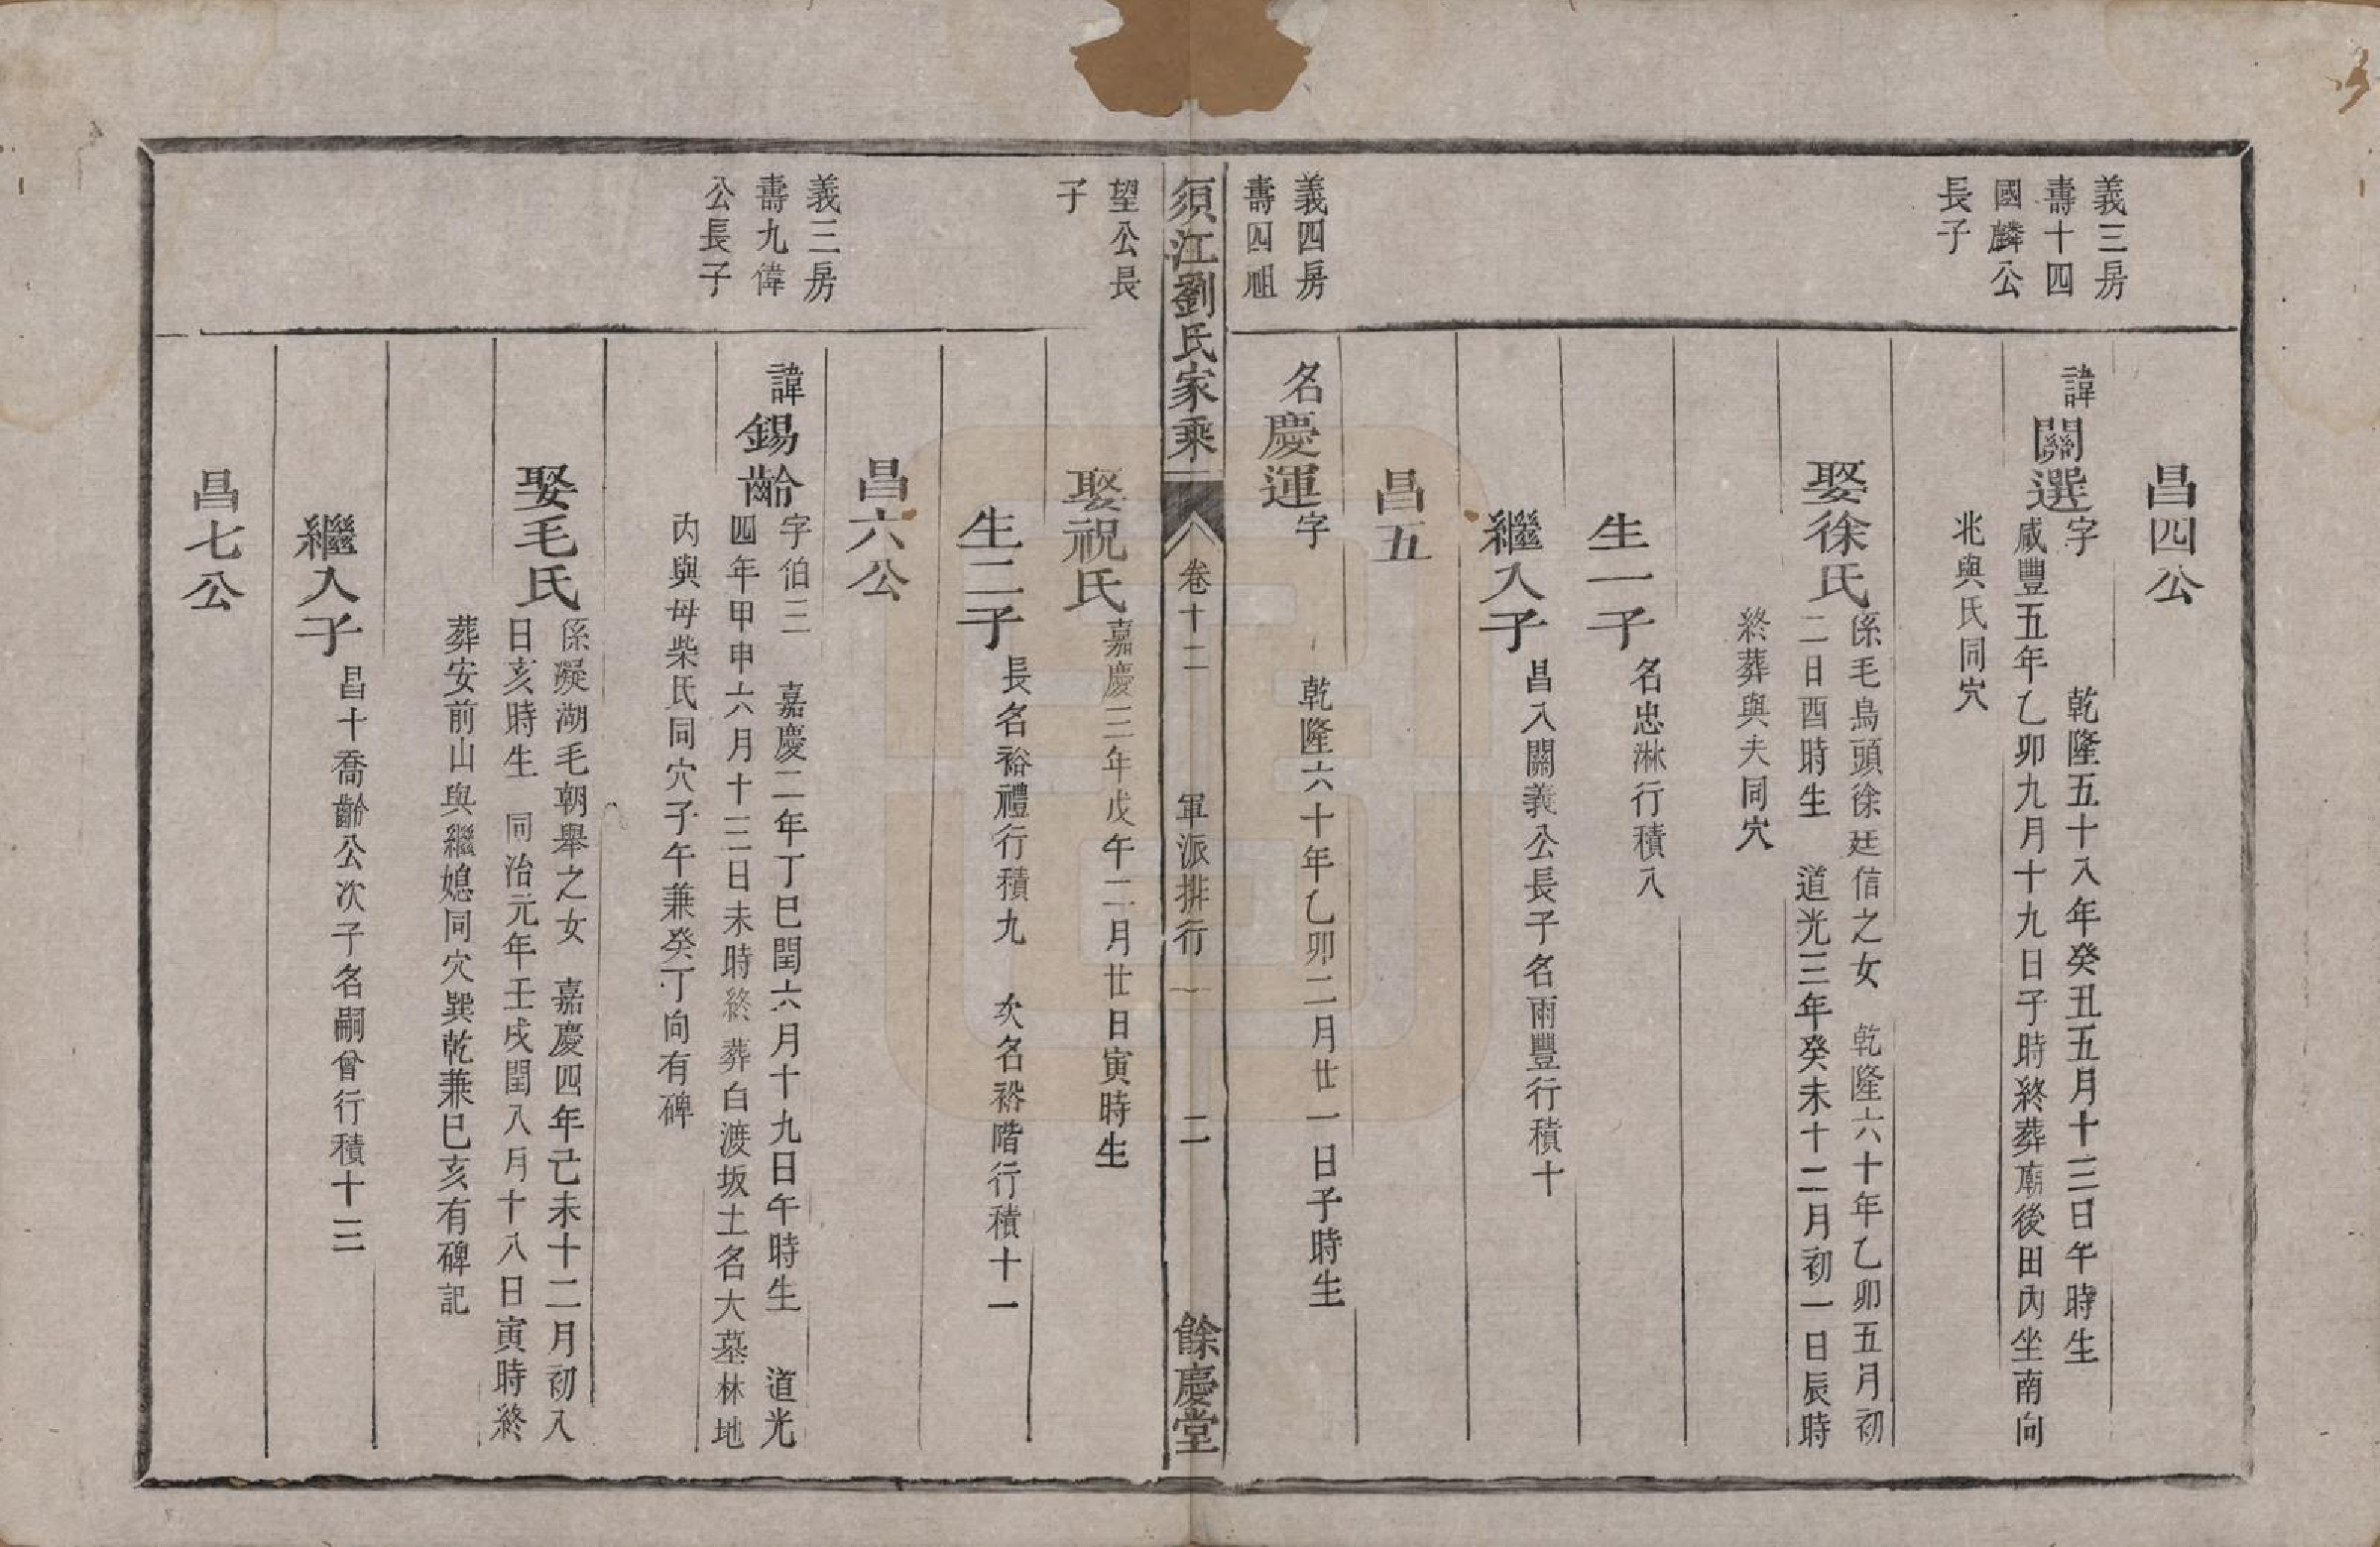 昌四公
義三房
壽十四
國麟公
長子
諱關選字 乾隆五十八年癸丑五月十三日午時生
咸豐五年乙卯九月十九日子時終葬廟後田內坐南向
兆與氏同穴
娶徐氏係毛烏頭徐廷信之女 乾隆六十年乙卯五月初
二日酉時生 道光三年癸未十二月初一日辰時
終葬與夫同穴
生一子名忠淋行積八
繼入子昌八關義公長子名雨豐行積十
昌五
義四房
壽四祖
名慶運字 乾隆六十年乙卯二月廿一日子時生
須江劉氏家乘
卷十二
軍派排行
二
餘慶堂
望公長
子
娶祝氏嘉慶三年戊午二月廿日寅時生
生二子長名裕禮行積九 次名裕階行積十一
昌六公
義三房
壽九偉
公長子
諱錫齡字伯三 嘉慶二年丁巳閏六月十九日午時生 道光
四年甲申六月十三日未時終葬白渡坂土名大墓林地
內與母柴氏同穴子午兼癸丁向有碑
娶毛氏係礙湖毛朝舉之女 嘉慶四年己未十二月初八
日亥時生 同治元年壬戌閏八月十八日寅時終
葬安前山與繼媳同穴巽乾兼巳亥有碑記
繼入子昌十喬齡公次子名嗣曾行積十三
昌七公